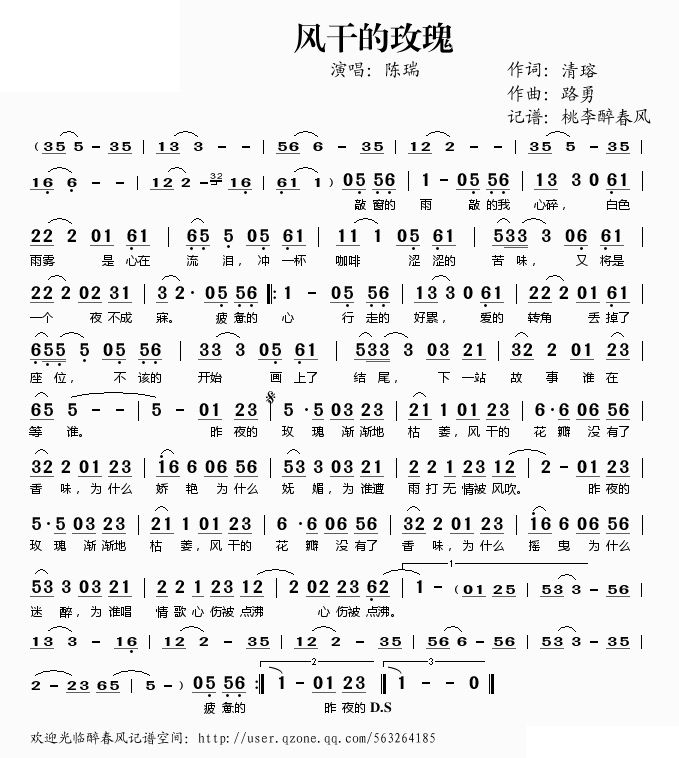 风干的玫瑰
演唱：陈瑞
作词：清瑢
作曲：路勇
记谱：桃李醉春风
（35 5 - 35 | 13 3 - - | 56 6 - 35 | 12 2 - - | 35 5 - 35 |
16 6 - - | 12 2 - 32 16 | 61 1 ）05 56 | 1 - 05 56 | 13 3 0 61 |
敲 窗的 雨 敲 的我 心碎， 白色
22 2 01 61 | 65 5 05 61 | 11 1 05 61 | 533 3 06 61 |
雨雾 是 心在 流 泪，冲 一杯 咖啡 涩 涩的 苦 味， 又 将是
22 2 02 31 | 3 2· 05 56 ‖: 1 - 05 56 | 13 3 0 61 | 22 2 01 61 |
一个 夜 不成 寐。 疲 惫的 心 行 走的 好累， 爱的 转角 丢 掉了
655 5 05 56 | 33 3 05 61 | 533 3 03 21 | 32 2 01 23 |
座 位， 不 该的 开始 画 上了 结 尾， 下 一站 故 事 谁 在
65 5 - - | 5 - 01 23 | 5 ·5 03 23 | 21 1 01 23 | 6 ·6 06 56 |
等 谁。 昨 夜的 玫 瑰 渐 渐地 枯 萎，风 干的 花 瓣 没 有了
32 2 01 23 | i6 6 06 56 | 53 3 03 21 | 2 1 2 1 23 12 | 2 - 01 23 |
香 味，为 什么 娇 艳 为 什么 妩 媚，为 谁遭 雨 打 无 情被 风吹。 昨 夜的
5 ·5 03 23 | 21 1 01 23 | 6 ·6 06 56 | 32 2 01 23 | i6 6 06 56 |
玫 瑰 渐 渐地 枯 萎，风 干的 花 瓣 没 有了 香 味，为 什么 摇 曳 为 什么
53 3 03 21 | 2 1 2 1 23 12 | 2 02 23 62 | 1 - （01 25 | 53 3 - 56 |
迷 醉，为 谁唱 情 歌 心 伤被 点沸 心 伤被 点沸。
13 3 - 16 | 12 2 - 35 | 12 2 - 35 | 56 6 - 56 | 53 3 - 35 |
2 - 23 65 | 5 - ）05 56 :‖ 1 - 01 23 ‖ 1 - - 0 ‖
疲 惫的 昨 夜的 D.S
欢迎光临醉春风记谱空间：http://user.qzone.qq.com/563264185